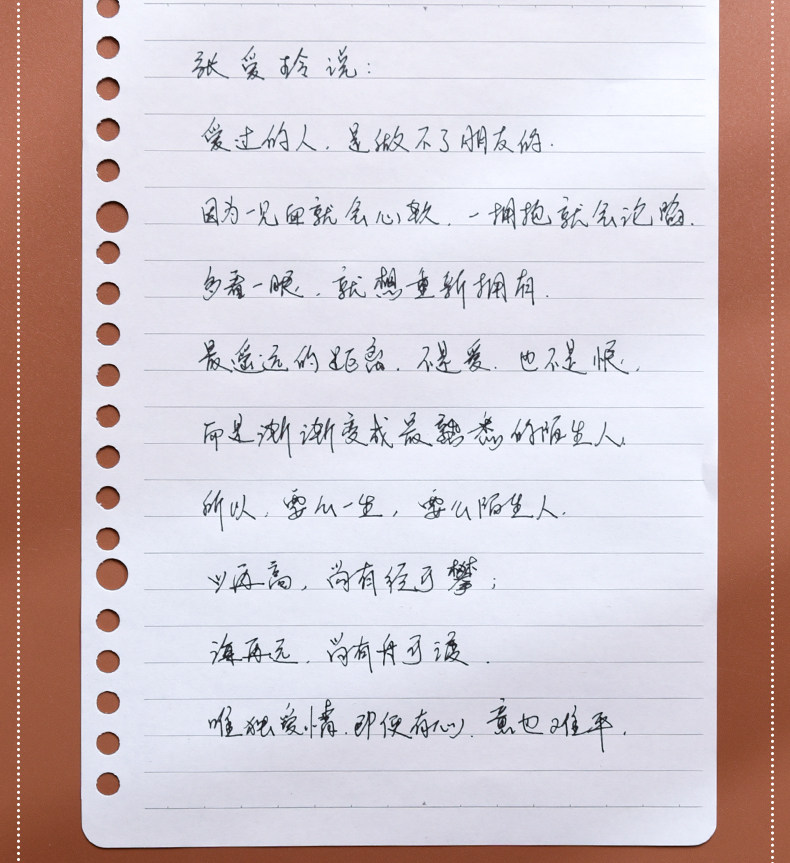 张爱玲说:
爱过的人,是做不了朋友的.
因为一见面就会心软,一拥抱就会沦陷.
多看一眼,就想重新拥有.
最遥远的距离,不是爱,也不是恨,
而是渐渐变成最熟悉的陌生人.
所以,要么一生,要么陌生人.
山再高,尚有径可攀;
海再远,尚有舟可渡.
唯独爱情,即便有心,意也难平.